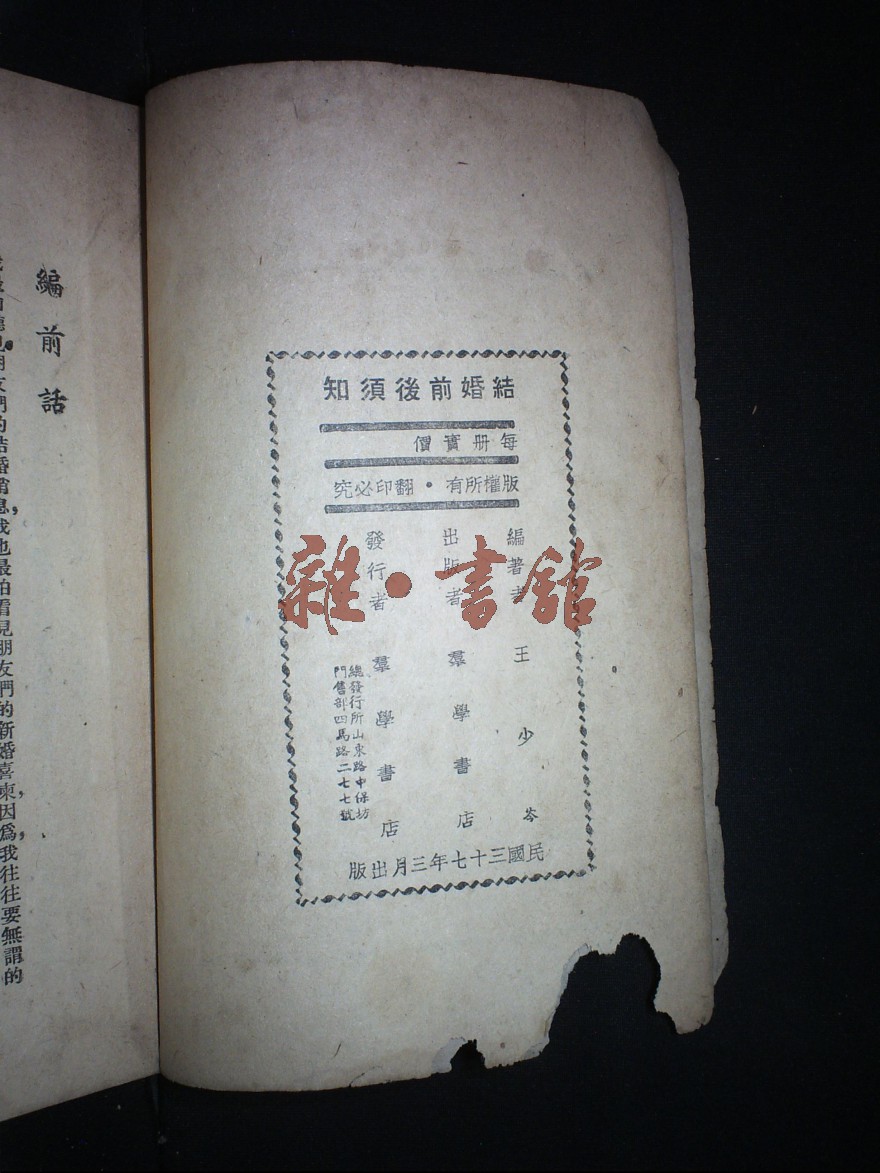 結婚前後須知
每册實價
版權所有・翻印必究
編著者 王少岑
出版者 羣學書店
發行者 羣學書店
總發行所山東路中保坊
門售部四馬路二七七號
民國三十七年三月出版
雜・書館
編前話
們的結婚消息，我也最怕看見朋友們的新婚喜柬，因爲，我往往要無謂的